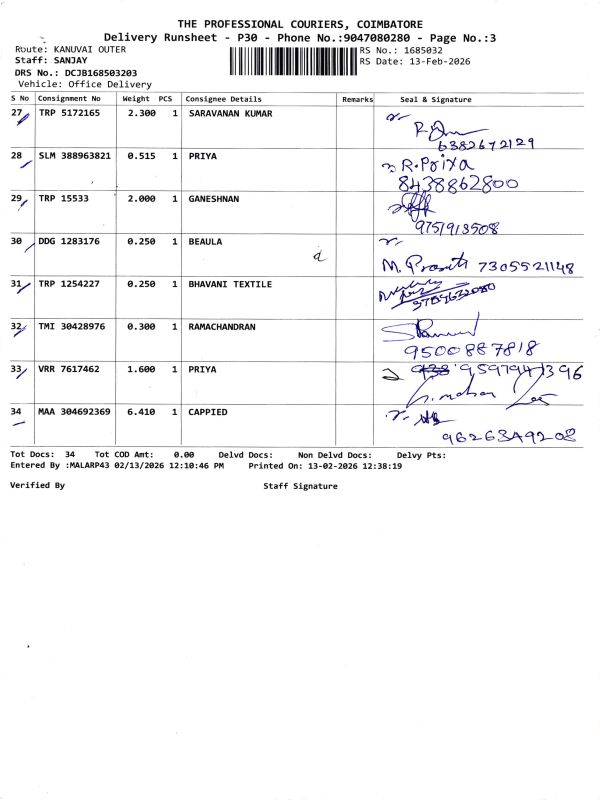 THE PROFESSIONAL COURIERS, COIMBATORE
Delivery Runsheet - P30 - Phone No.:9047080280 - Page No.:3
Route: KANUVAI OUTER RS No.: 1685032
Staff: SANJAY RS Date: 13-Feb-2026
DRS No.: DCJB168503203
Vehicle: Office Delivery
S No Consignment No Weight PCS Consignee Details Remarks Seal & Signature
27 TRP 5172165 2.300 1 SARAVANAN KUMAR
6382672129
28 SLM 388963821 0.515 1 PRIYA R.Priya
8438862800
29 TRP 15533 2.000 1 GANESHNAN
9751913508
30 DDG 1283176 0.250 1 BEAULA
M. 7305521148
31 TRP 1254227 0.250 1 BHAVANI TEXTILE
32 TMI 30428976 0.300 1 RAMACHANDRAN
9500887818
33 VRR 7617462 1.600 1 PRIYA
34 MAA 304692369 6.410 1 CAPPIED
9626349208
Tot Docs: 34 Tot COD Amt: 0.00 Delvd Docs: Non Delvd Docs: Delvy Pts:
Entered By :MALARP43 02/13/2026 12:10:46 PM Printed On: 13-02-2026 12:38:19
Verified By Staff Signature